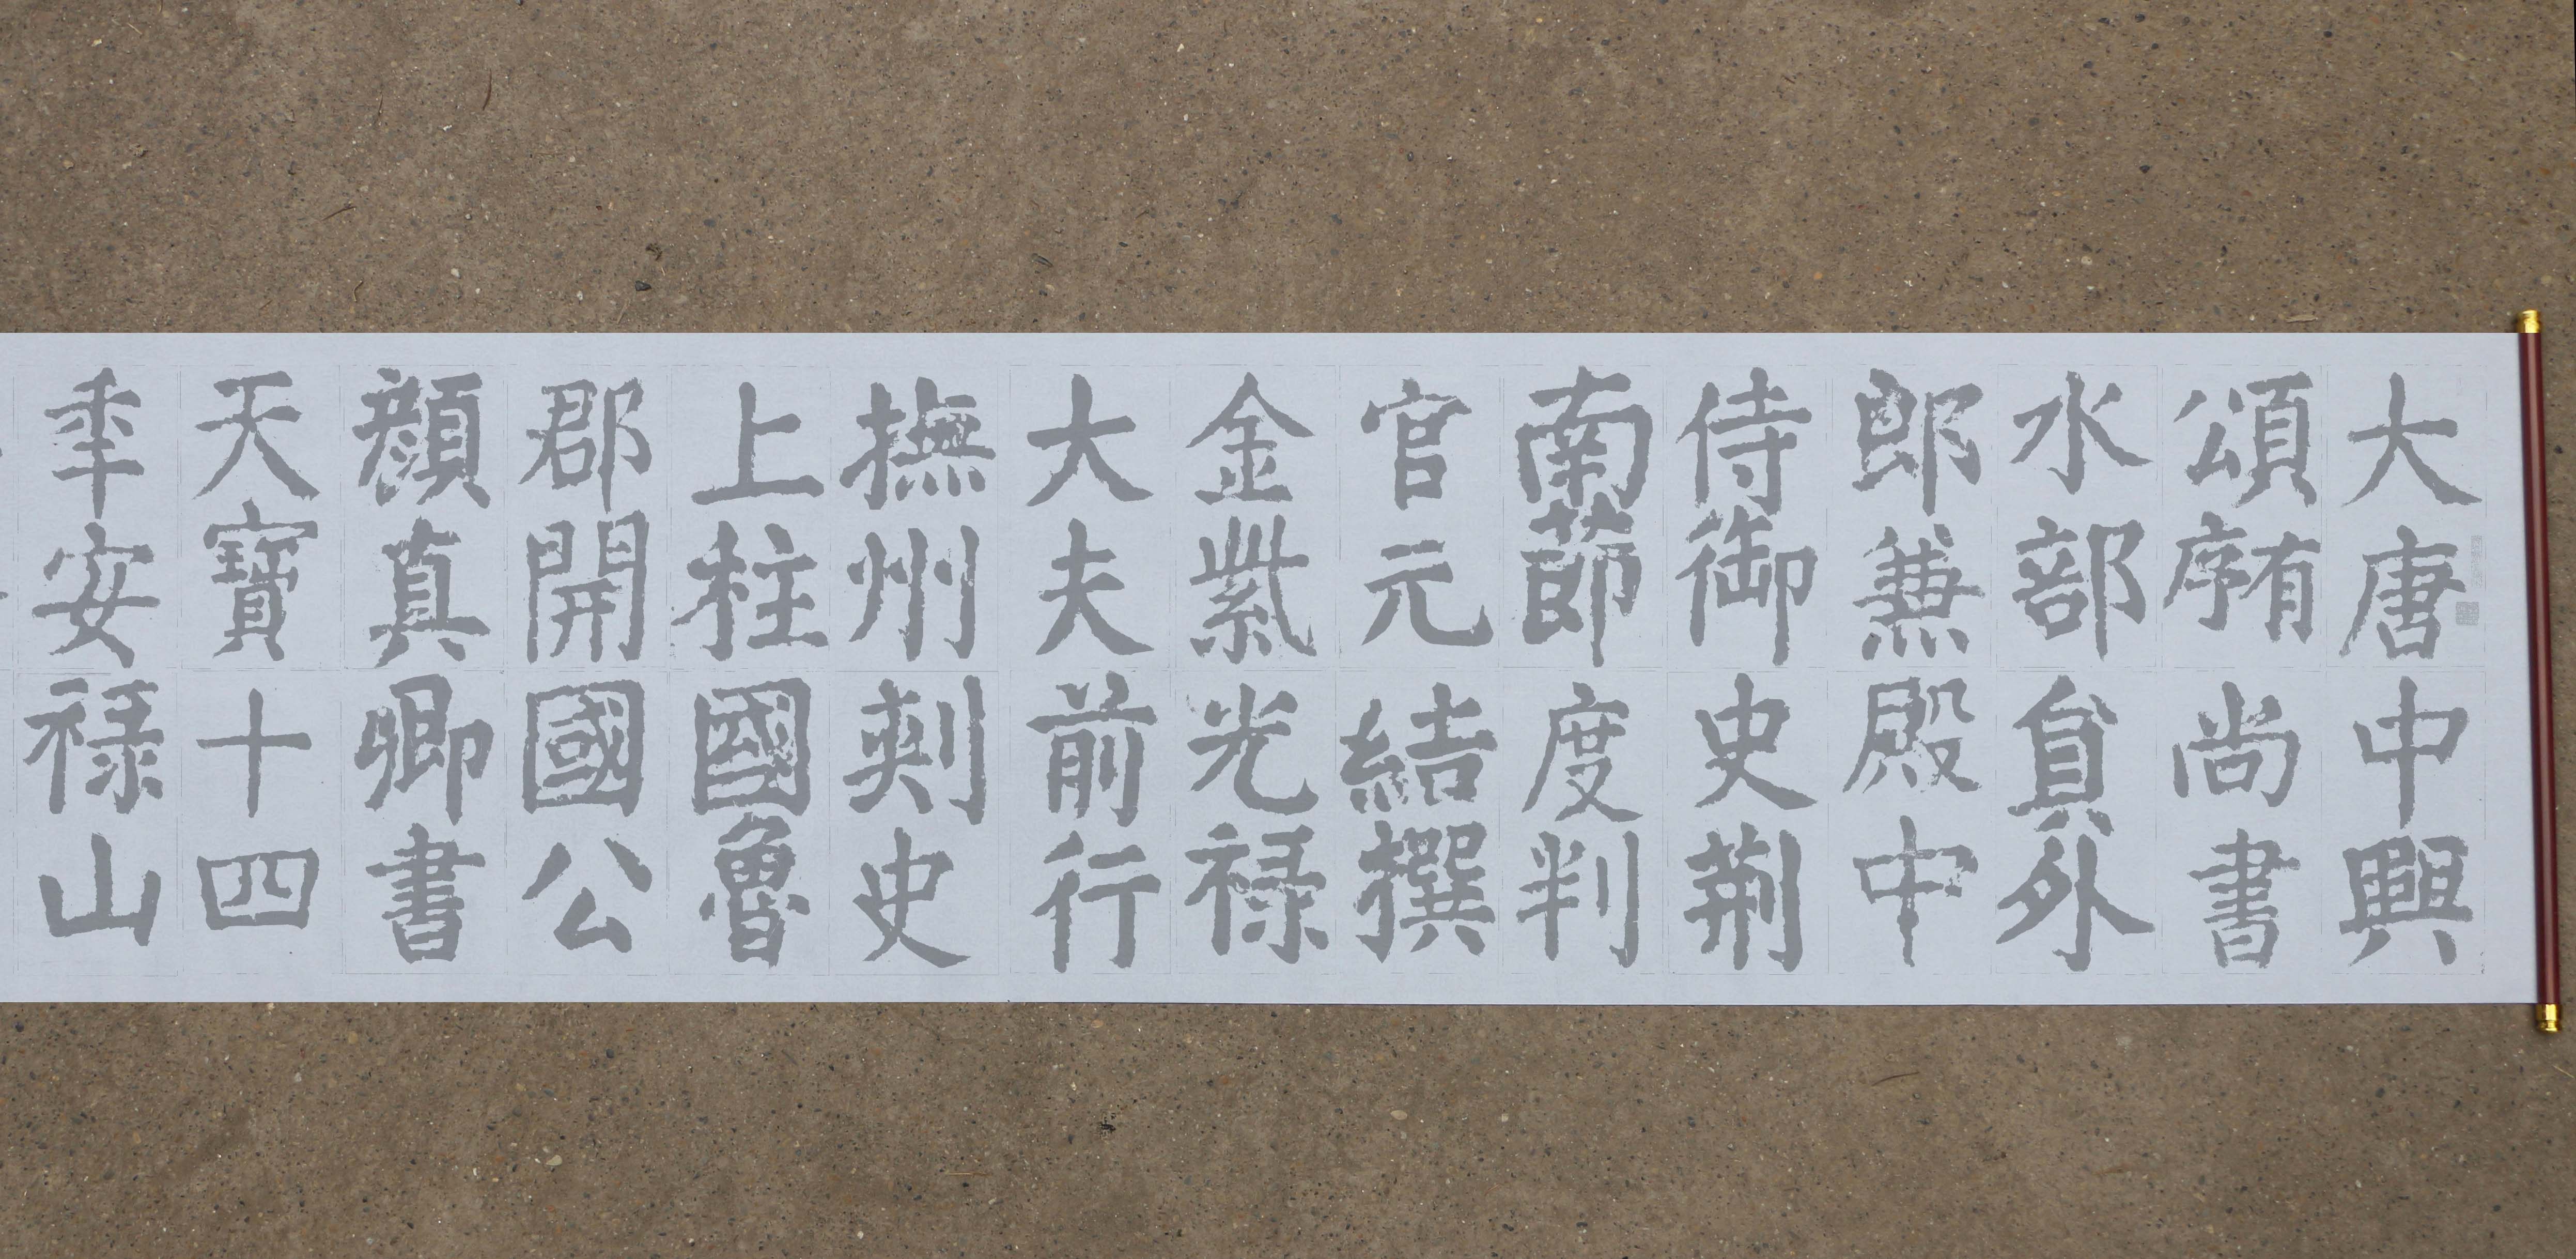 大唐中興
頌有序尚書
水部員外
郎兼殿中
侍御史荆
南節度判
官元結撰
金紫光禄
大夫前行
撫州刺史
上柱國魯
郡開國公
顔真卿書
天寶十四
年安禄山